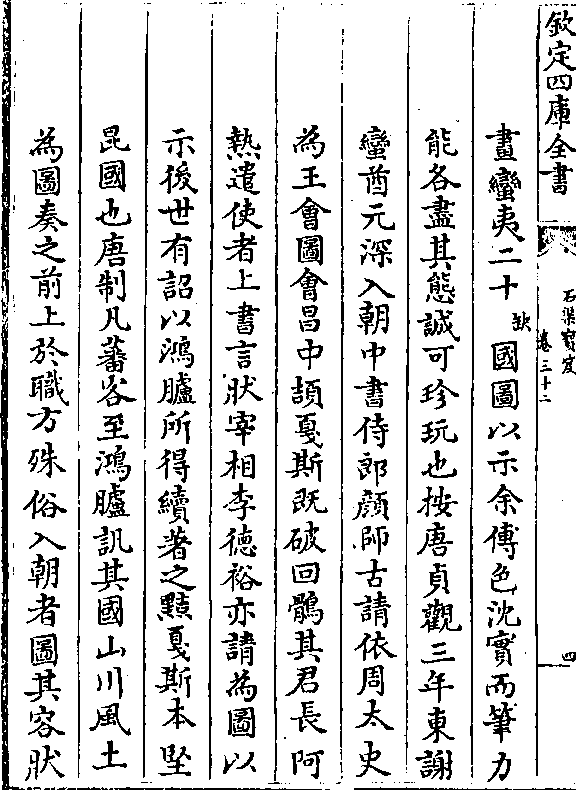 欽定四庫全書
石渠寶笈
卷三十二
四
畫蠻夷二十缺國圖以示余傅色沈實而筆力
能各盡其態誠可珍玩也按唐貞觀三年東謝
蠻酋元深入朝中書侍郎顔師古請依周太史
為王會圖會昌中頡戛斯既破回鶻其君長阿
熱遣使者上書言狀宰相李德裕亦請為圖以
示後世有詔以鴻臚所得續著之黠戛斯本堅
昆國也唐制凡蕃客至鴻臚訊其國山川風土
為圖奏之前上於職方殊俗入朝者圖其容狀